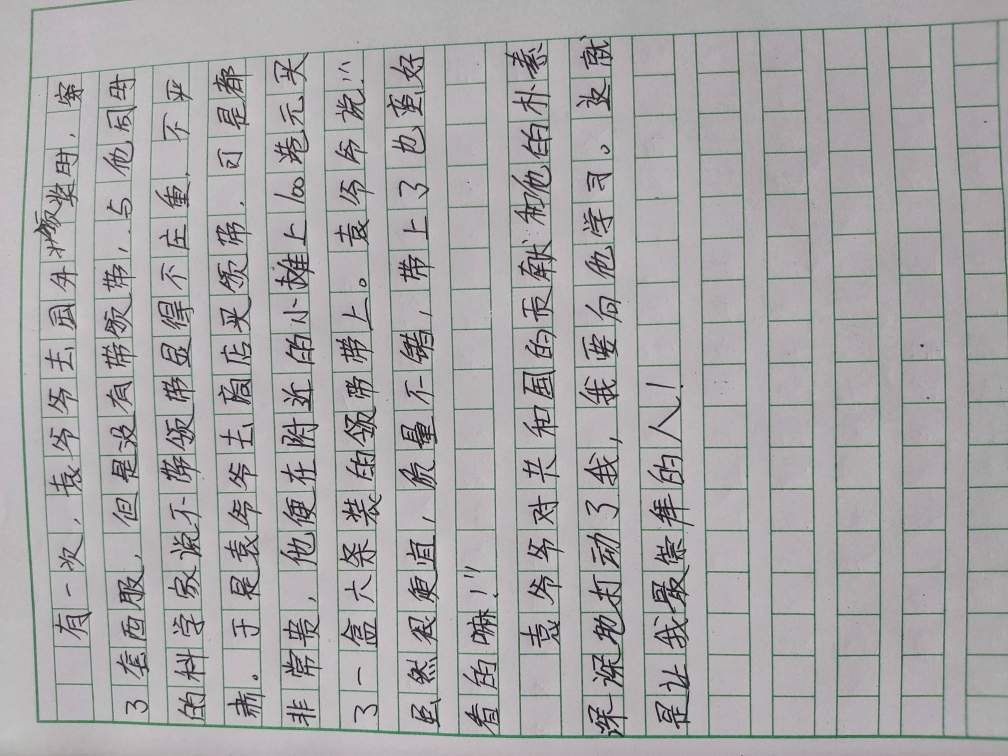 有一次，袁爷爷去国外领奖时，穿
了套西服，但是没有带领带，与他同时
的科学家说不带领带显得不庄重，不严
肃。于是袁爷爷去商店买领带，可是都
非常贵，他便在附近的小摊上100港元买
了一盒六条装的领带带上。袁爷爷说："
虽然很便宜，质量不错，带上了也蛮好
看的嘛！"
袁爷爷对共和国的贡献和他的朴素
深深地打动了我，我要向他学习。这就
是让我最崇拜的人！